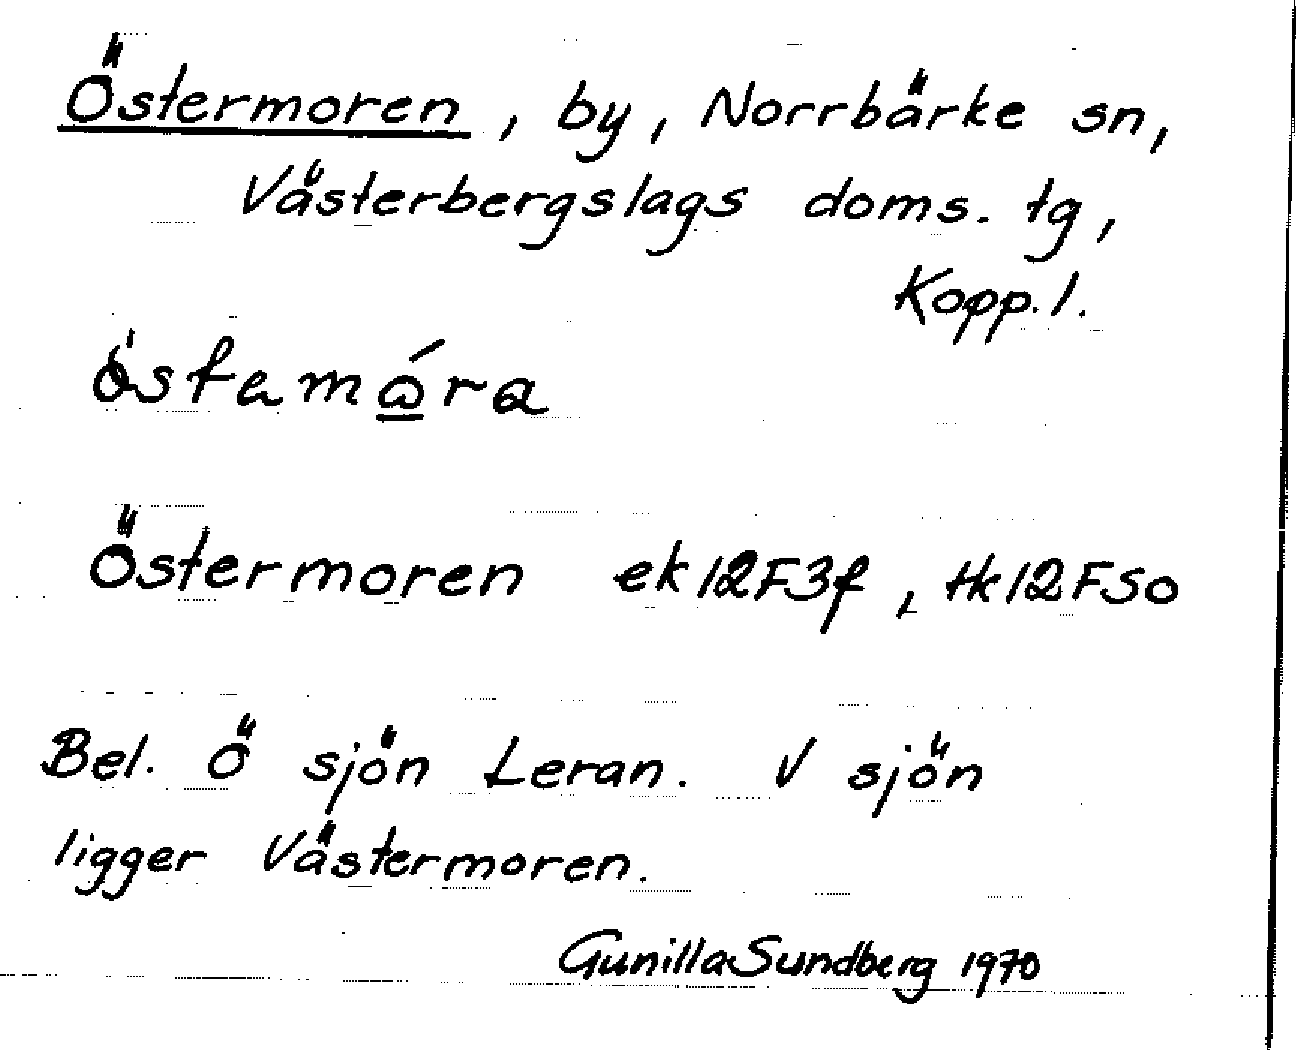 Östermoren, by, Norrbärke sn,
Västerbergslags doms. tg,
Kopp. l.
Östermoren ek12F3f, tk12FSO
Bel. Ö sjön Leran. V sjön
ligger Västermoren.
Gunilla Sundberg 1970